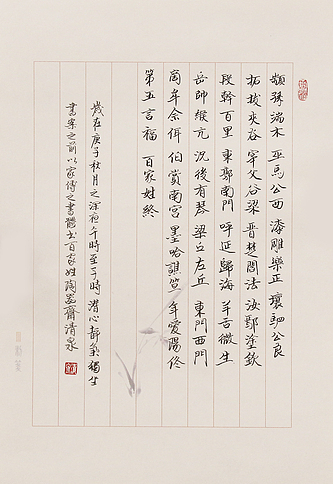 顓孫端木 巫馬公西 漆雕樂正 壤駟公良
拓拔夾谷 宰父谷梁 晉楚閻法 汝鄢塗欽
段幹百里 東郭南門 呼延歸海 羊舌微生
岳帥緱亢 況後有琴 梁丘左丘 東門西門
商牟佘佴 伯賞南宮 墨哈譙笪 年愛陽佟
第五言福 百家姓終
歲在庚子秋月之深夜午時至子時潛心靜氣獨坐
書案之前以家傳之書體書百家姓陶齋清泉